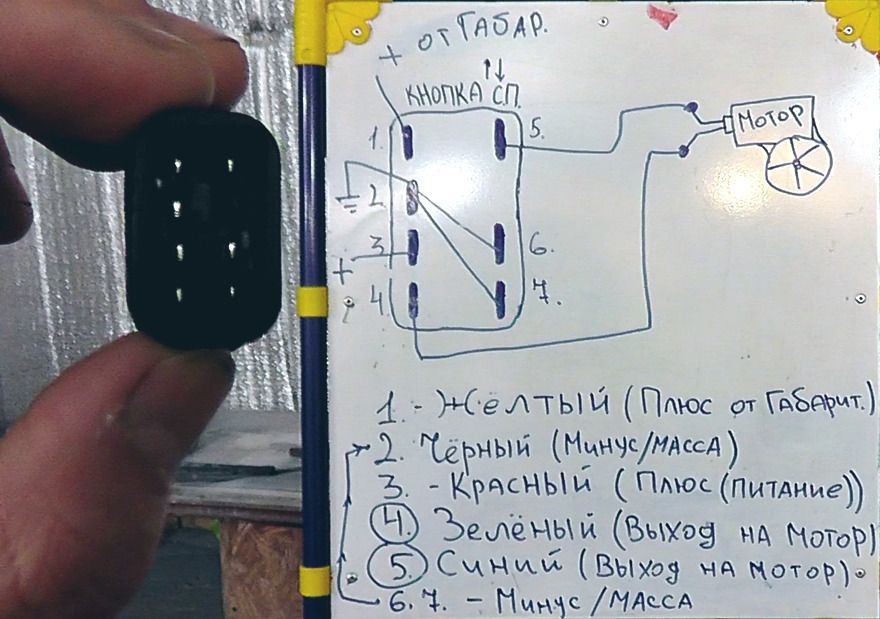 + от ГАБАР.
КНОПКА С.П.
1.
5.
МОТОР
2
3
6.
+
4.
7.
1. - Жёлтый (Плюс от Габарит.)
2. Чёрный (Минус/МАССА)
3. - КРАСНЫЙ (Плюс (питание))
4. Зелёный (Выход на мотор)
5. Синий (Выход на мотор)
6.7. - Минус/МАССА